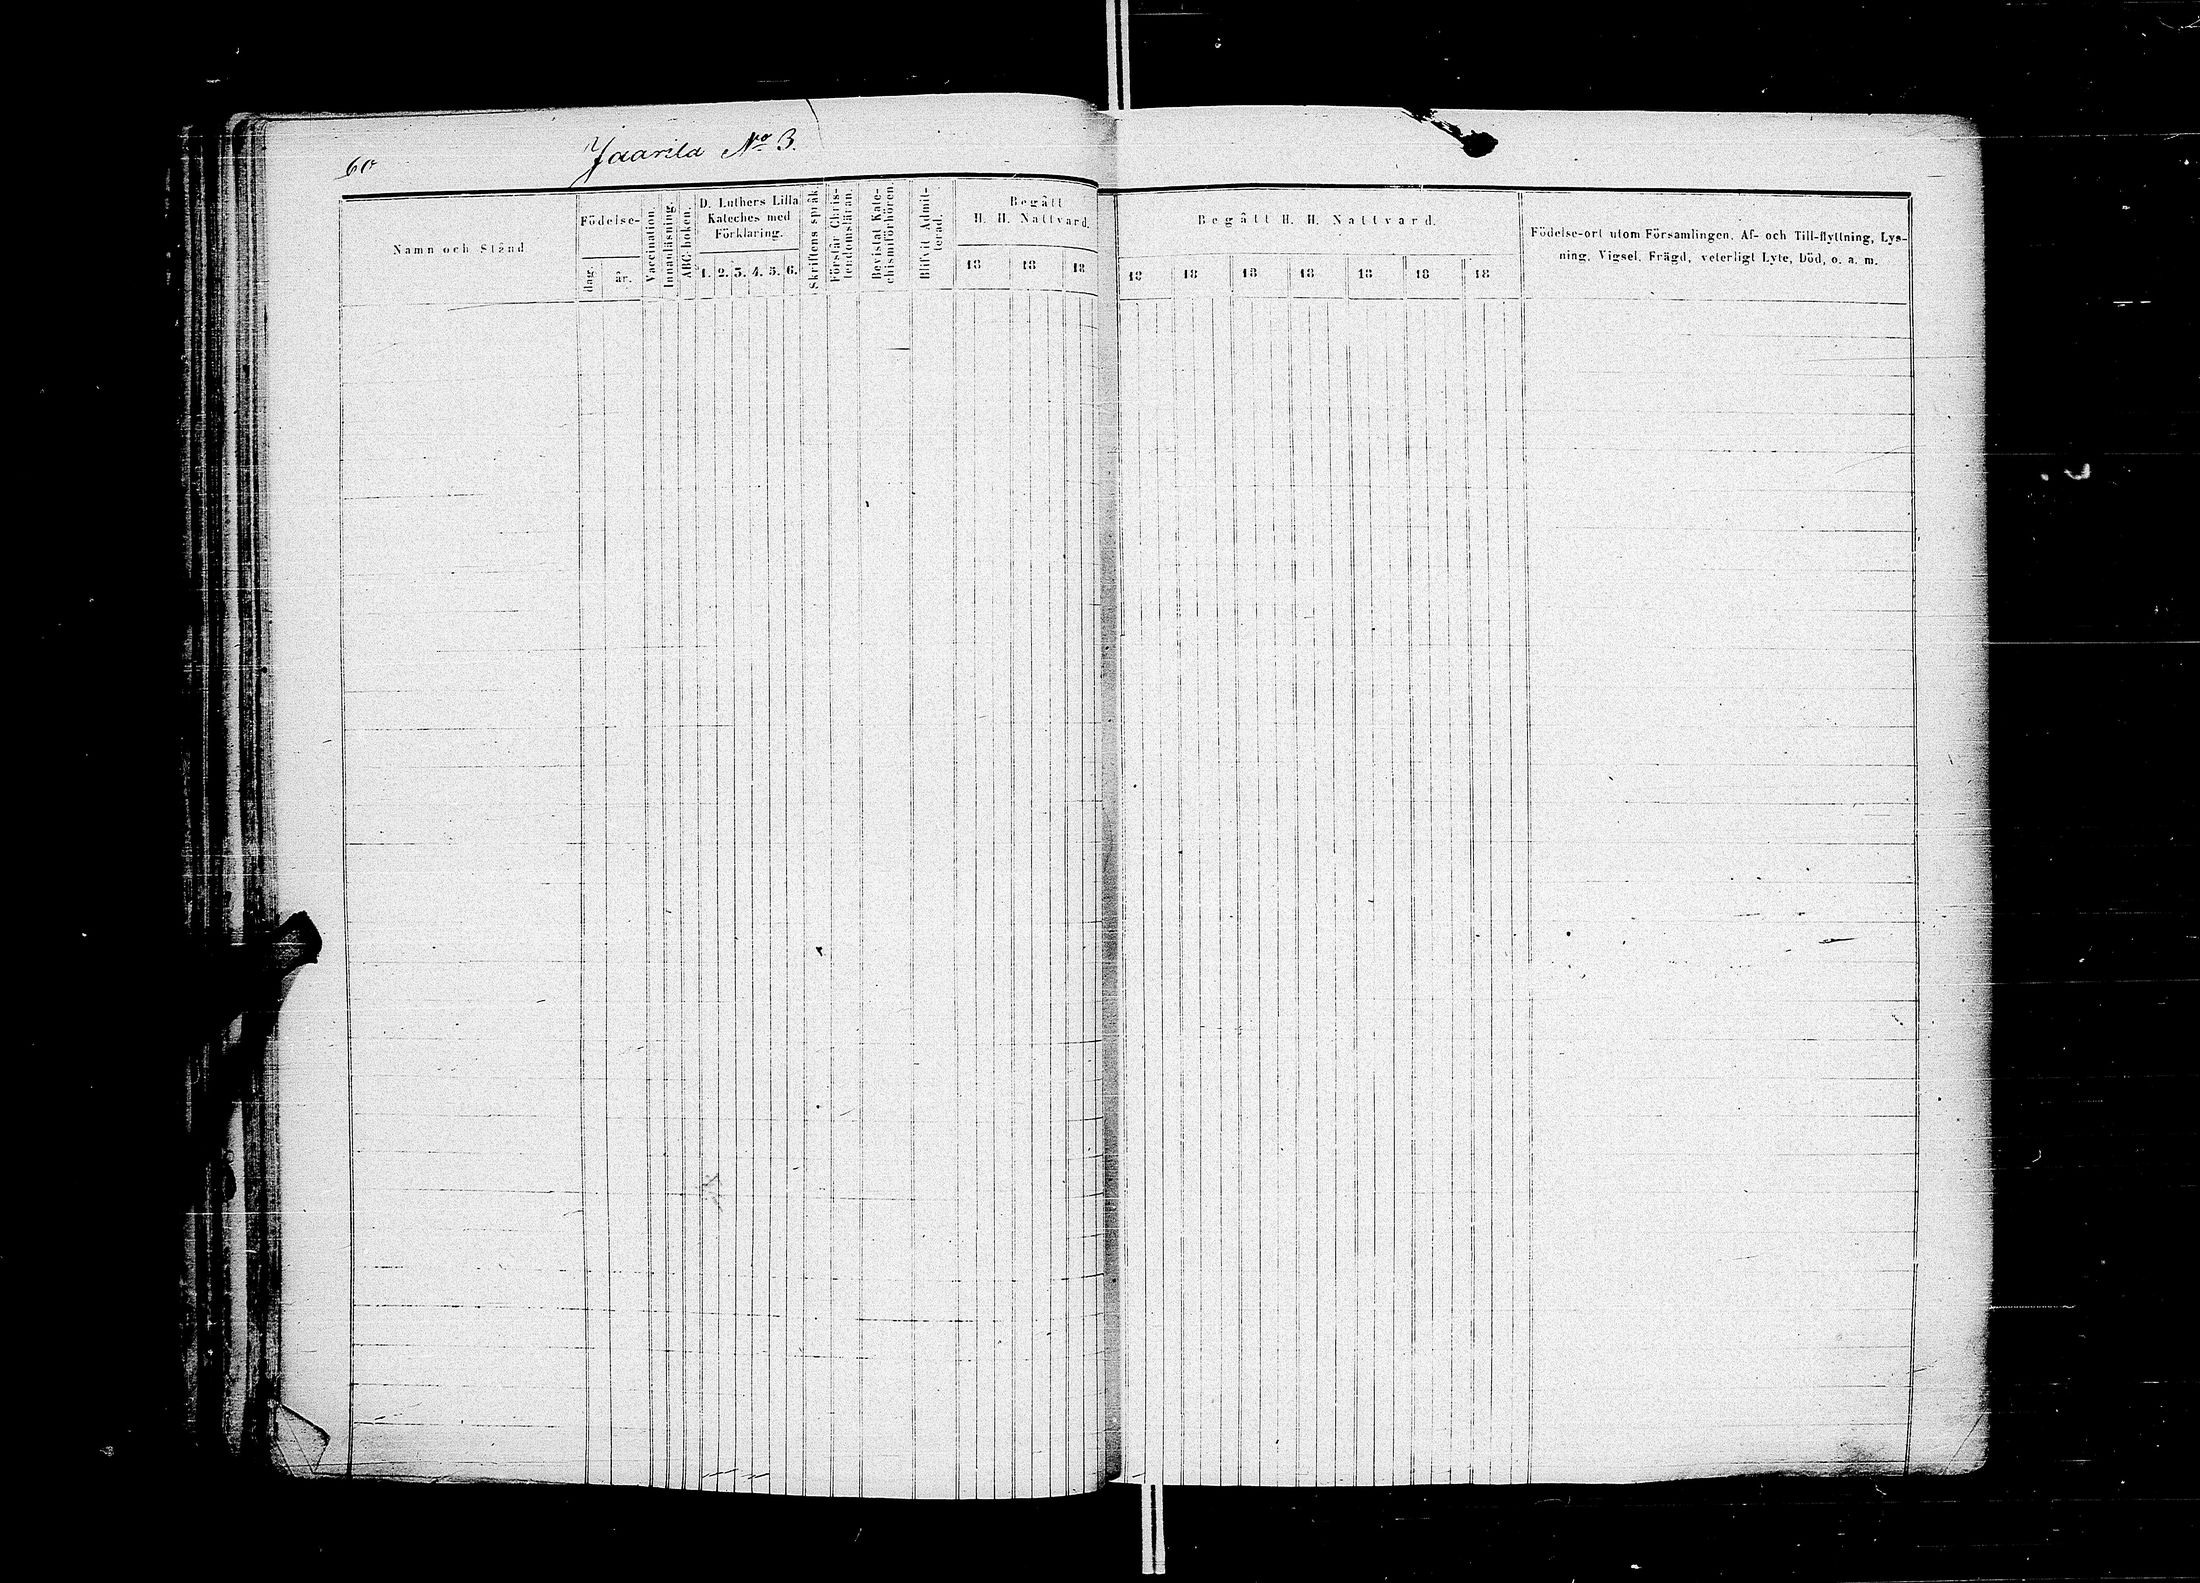 60
Jaarila No 3.
Namn och Stånd
Födelse-
dag.
år.
Vaccination.
Innanläsning.
ABC-boken.
D. Luthers Lilla
Kateches med
Förklaring.
1. 2. 3. 4. 5. 6.
Skriftens språk.
Förstår Chris-
tendomsläran.
Bevistat Kate-
chismiförhören.
Blifvit Admit-
terad.
Begått
H. H. Nattvard.
18 18 18
Begått H. H. Nattvard.
18 18 18 18 18 18 18
Födelse-ort utom Församlingen, Af- och Till-flyttning, Lys-
ning, Vigsel, Frägd, veterligt Lyte, Död, o. a. m.